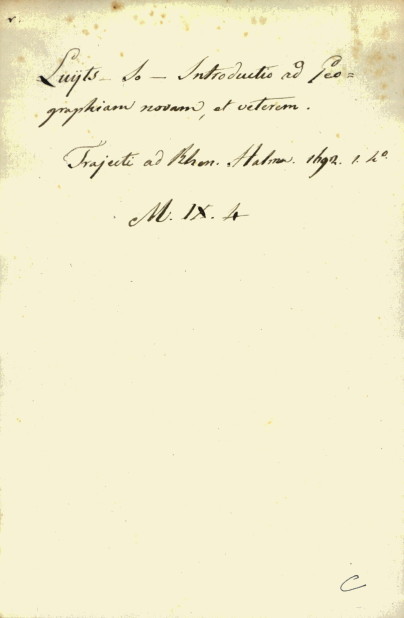 Luijts – Jo – Introductio ad Geo=
graphiam novam, et veterem.
Trajecti ad Rhen. Halma. 1692. 1. 4º.
M. IX. 4
C